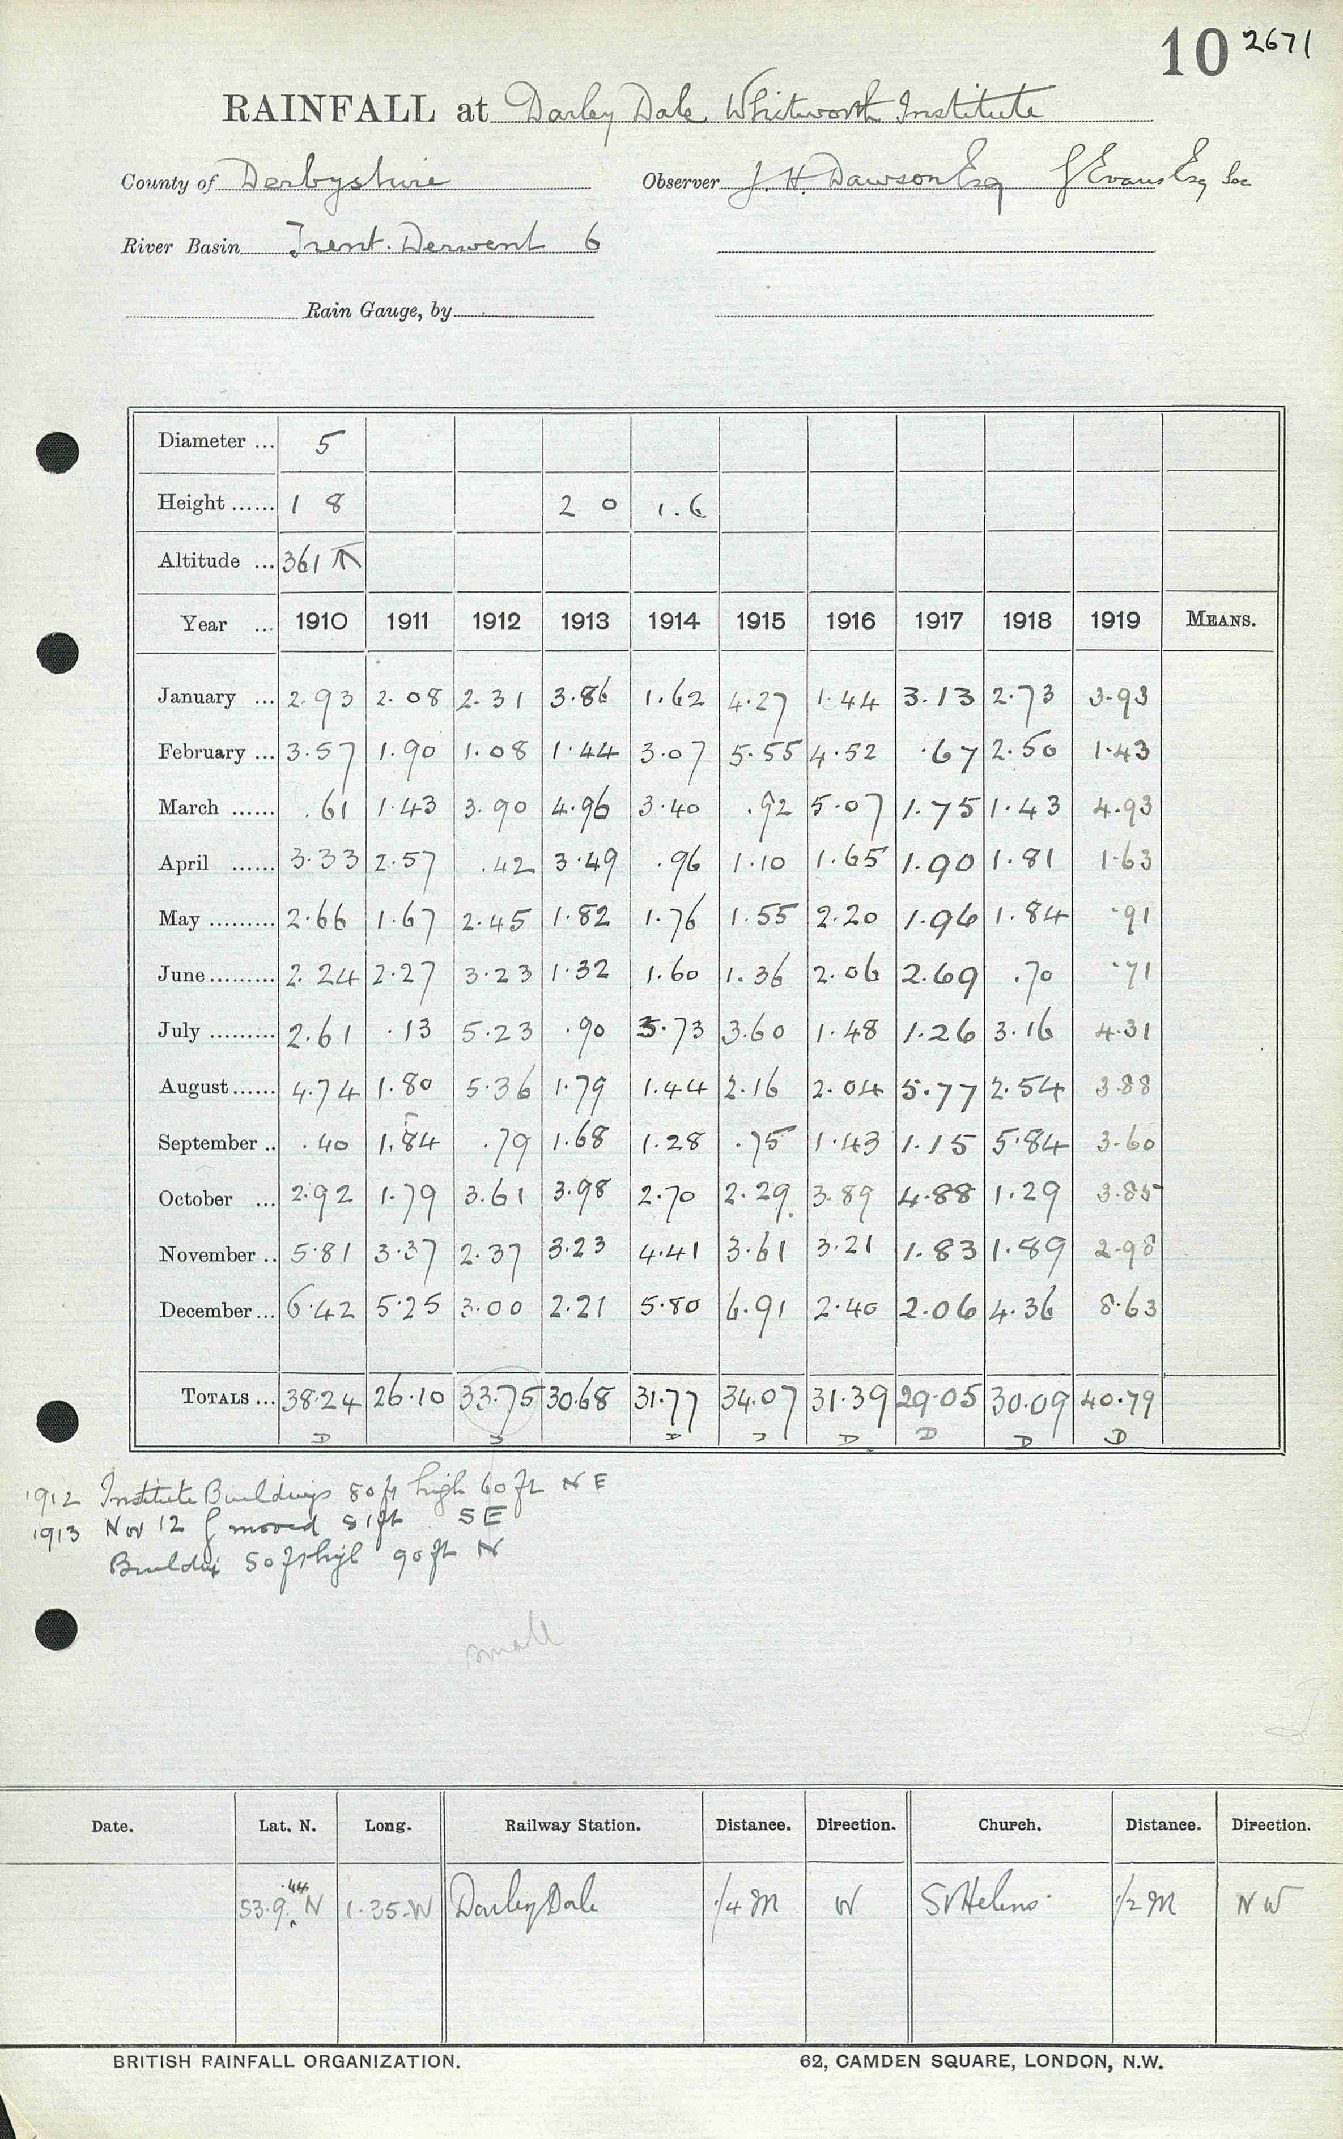 10 2671
RAINFALL at Darley Dale Whitworth Institute
County of Derbyshire Observer J. H. Dawson Esq J Evans Esq Sec
River Basin Trent. Derwent 6
Rain Gauge, by
Diameter ... 5
Height ...... 1 8 2 0 1.6
Altitude ... 361
Year ... 1910 1911 1912 1913 1914 1915 1916 1917 1918 1919 MEANS.
January ... 2.93 2.08 2.31 3.86 1.62 4.27 1.44 3.13 2.73 3.93
February ... 3.57 1.90 1.08 1.44 3.07 5.55 4.52 .67 2.50 1.43
March ...... .61 1.43 3.90 4.96 3.40 .92 5.07 1.75 1.43 4.93
April ...... 3.33 2.57 .42 3.49 .96 1.10 1.65 1.90 1.81 1.63
May ......... 2.66 1.67 2.45 1.82 1.76 1.55 2.20 1.96 1.84 .91
June ......... 2.24 2.27 3.23 1.32 1.60 1.36 2.06 2.69 .70 .71
July ......... 2.61 .13 5.23 .90 3.73 3.60 1.48 1.26 3.16 4.31
August ...... 4.74 1.80 5.36 1.79 1.44 2.16 2.04 5.77 2.54 3.88
September .. .40 1.84 .79 1.68 1.28 .75 1.43 1.15 5.84 3.60
October ... 2.92 1.79 3.61 3.98 2.70 2.29 3.89 4.88 1.29 3.85
November .. 5.81 3.37 2.37 3.23 4.41 3.61 3.21 1.83 1.89 2.98
December ... 6.42 5.25 3.00 2.21 5.80 6.91 2.40 2.06 4.36 8.63
TOTALS ... 38.24 26.10 33.75 30.68 31.77 34.07 31.39 29.05 30.09 40.79
D D D D D D
1912 Institute Buildings 50 ft high 60 ft N E
1913 Nov 12 g moved 81ft S E
Building 50 ft high 90 ft N
small
Date. Lat. N. Long. Railway Station. Distance. Direction. Church. Distance. Direction.
53.9.44 N 1.35.W Darley Dale 1/4 M W St Helens 1/2 M N W
BRITISH RAINFALL ORGANIZATION. 62, CAMDEN SQUARE, LONDON, N.W.